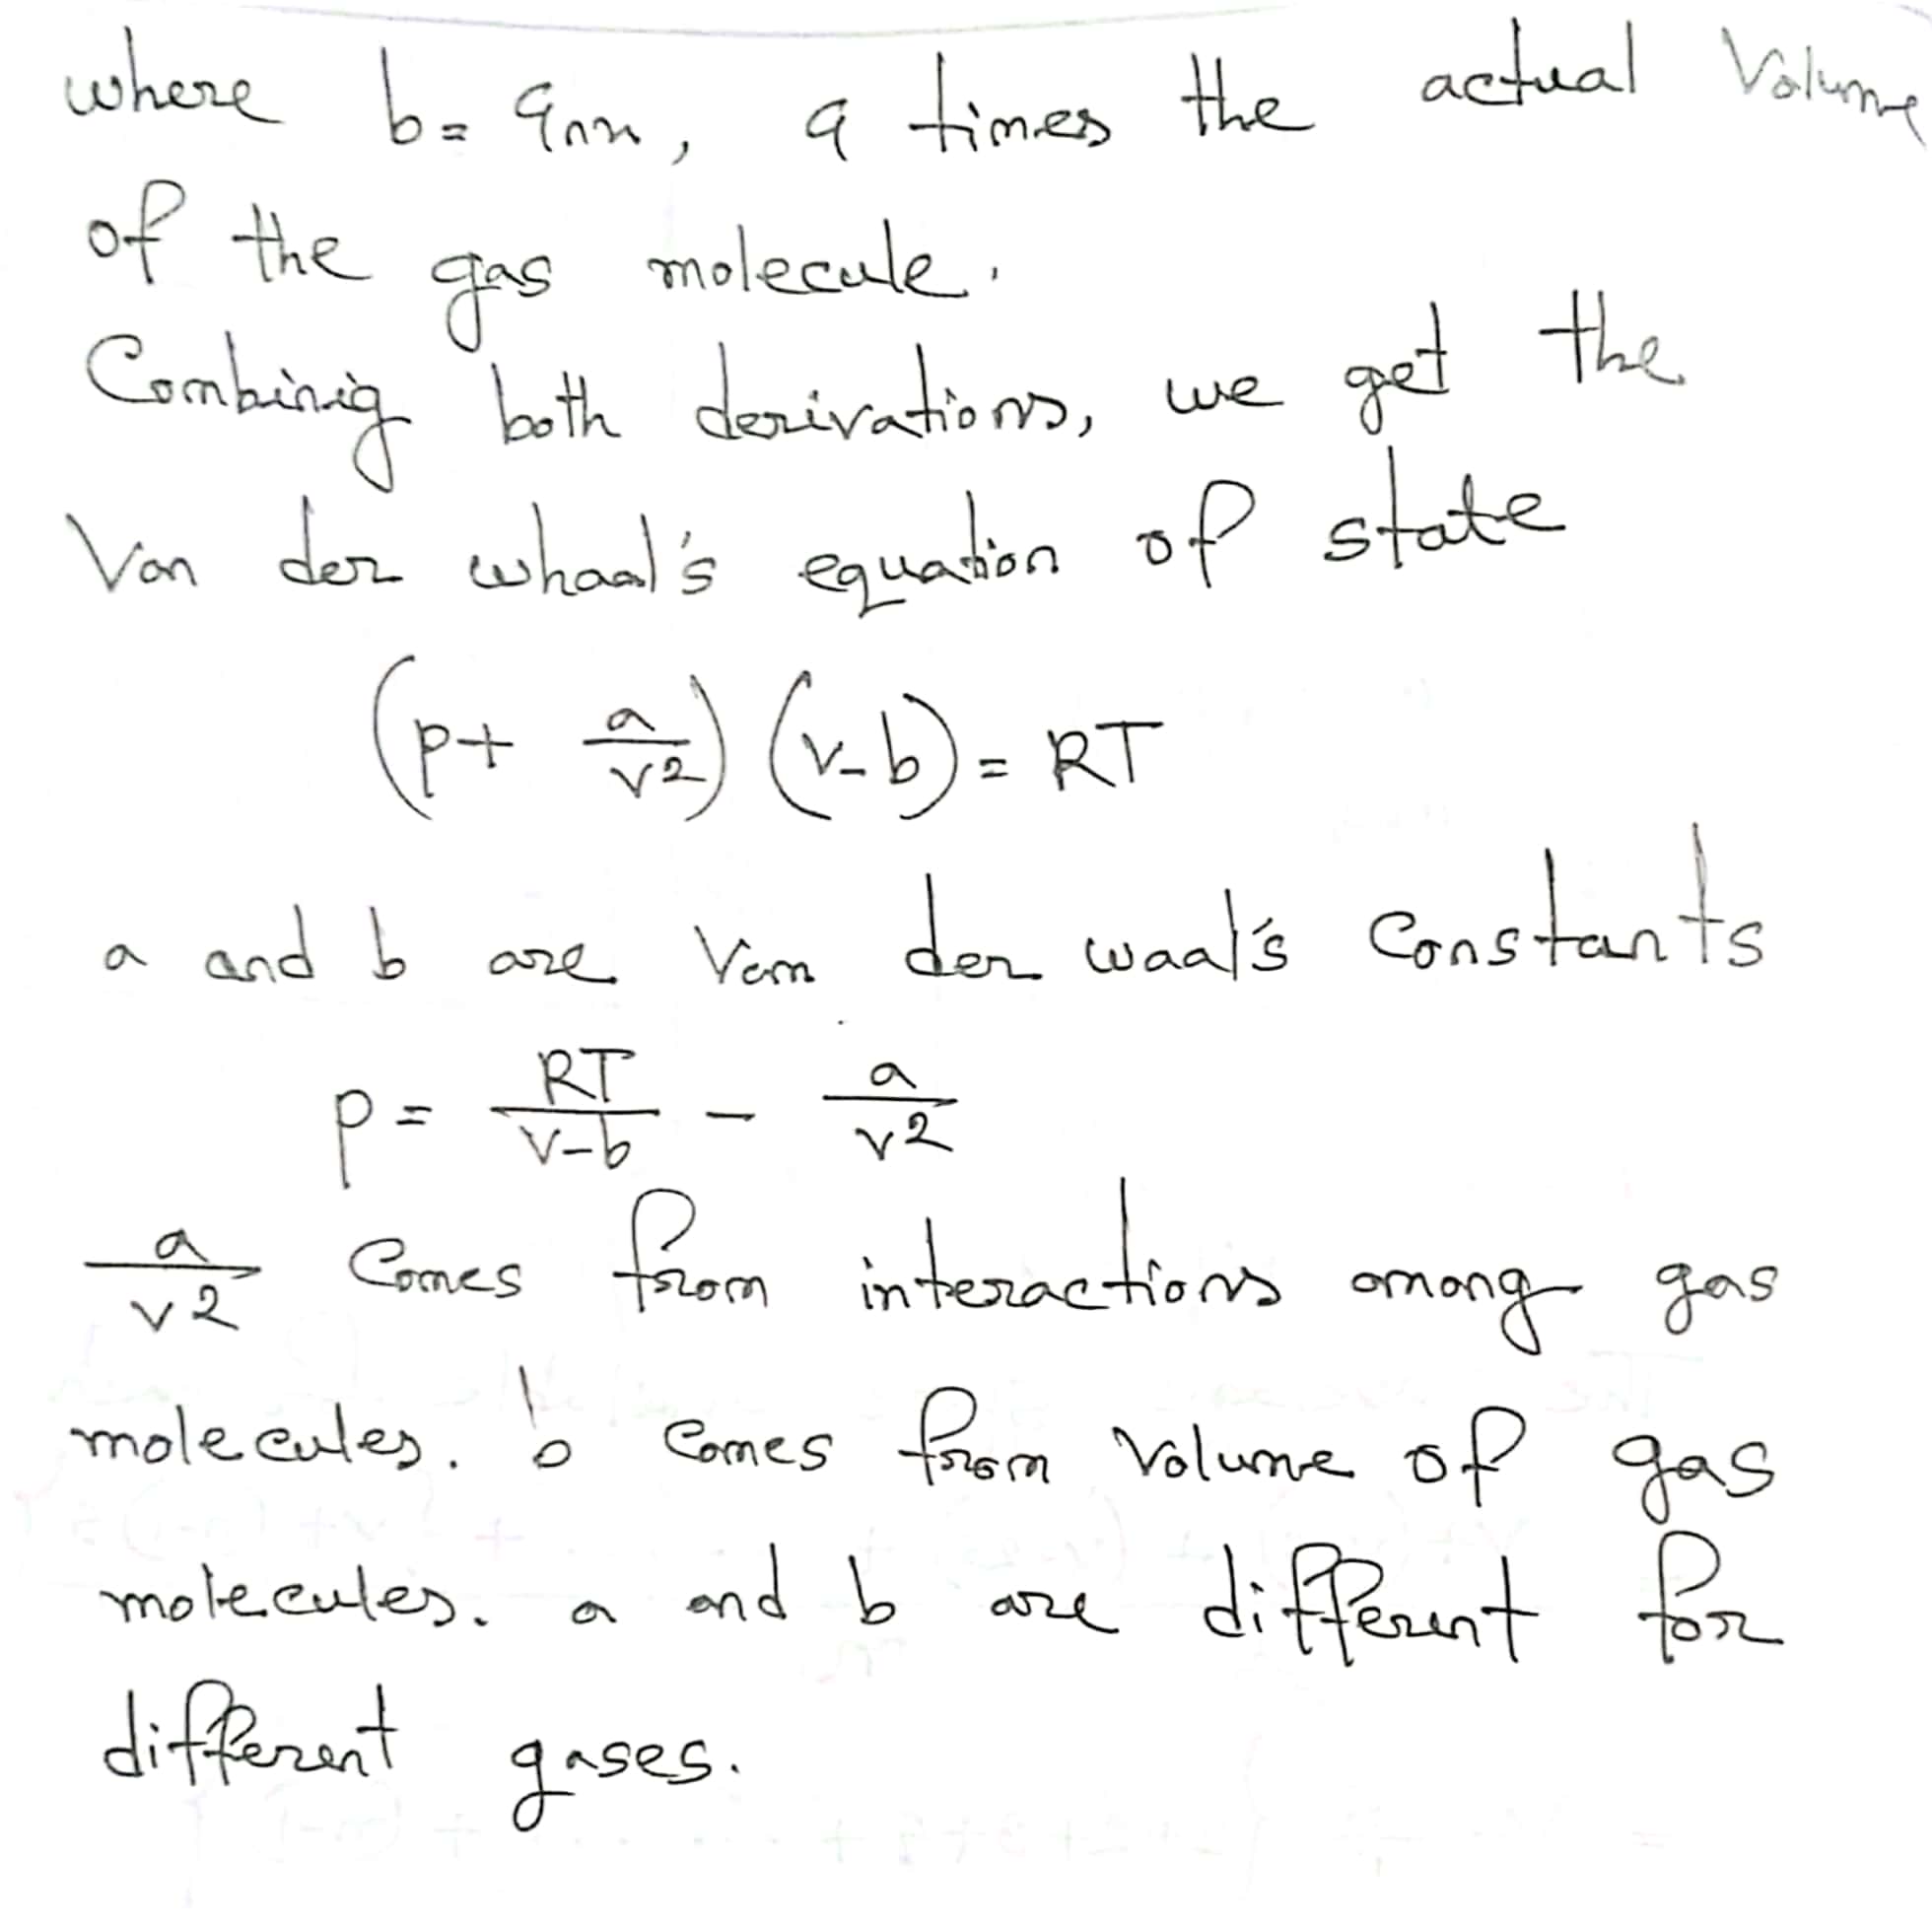 where b = 4nx, 4 times the actual Volume
of the gas molecule.
Combinig both derivations, we get the
Van der whaal's equation of state
(p + a/v²) (v-b) = RT
a and b are Van der waal's Constants
p = RT/v-b - a/v²
a/v² Comes from interactions among gas
molecules. b Comes from Volume of gas
molecules. a and b are different for
different gases.